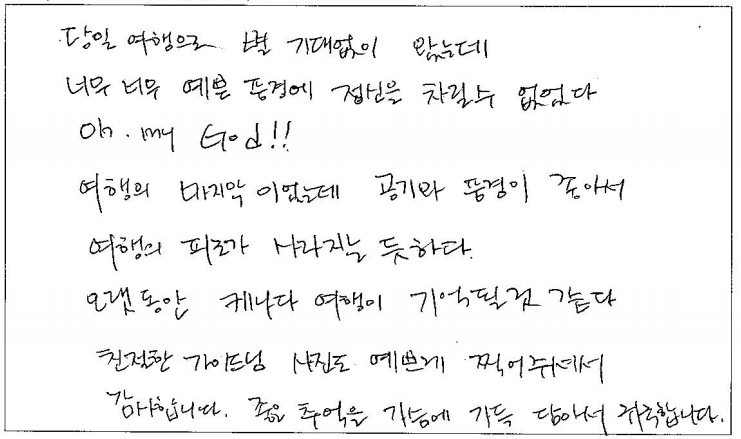 당일 여행으로 별 기대없이 왔는데
너무 너무 예쁜 풍경에 정신을 차릴수 없었다
Oh. my God!!
여행의 마지막 이었는데 공기와 풍경이 좋아서
여행의 피로가 사라지는 듯하다.
오랫동안 케나다 여행이 기억될것 같다
친절한 가이드님 사진도 예쁘게 찍어주셔서
감사합니다. 좋은 추억을 가슴에 가득 담아서 귀국합니다.